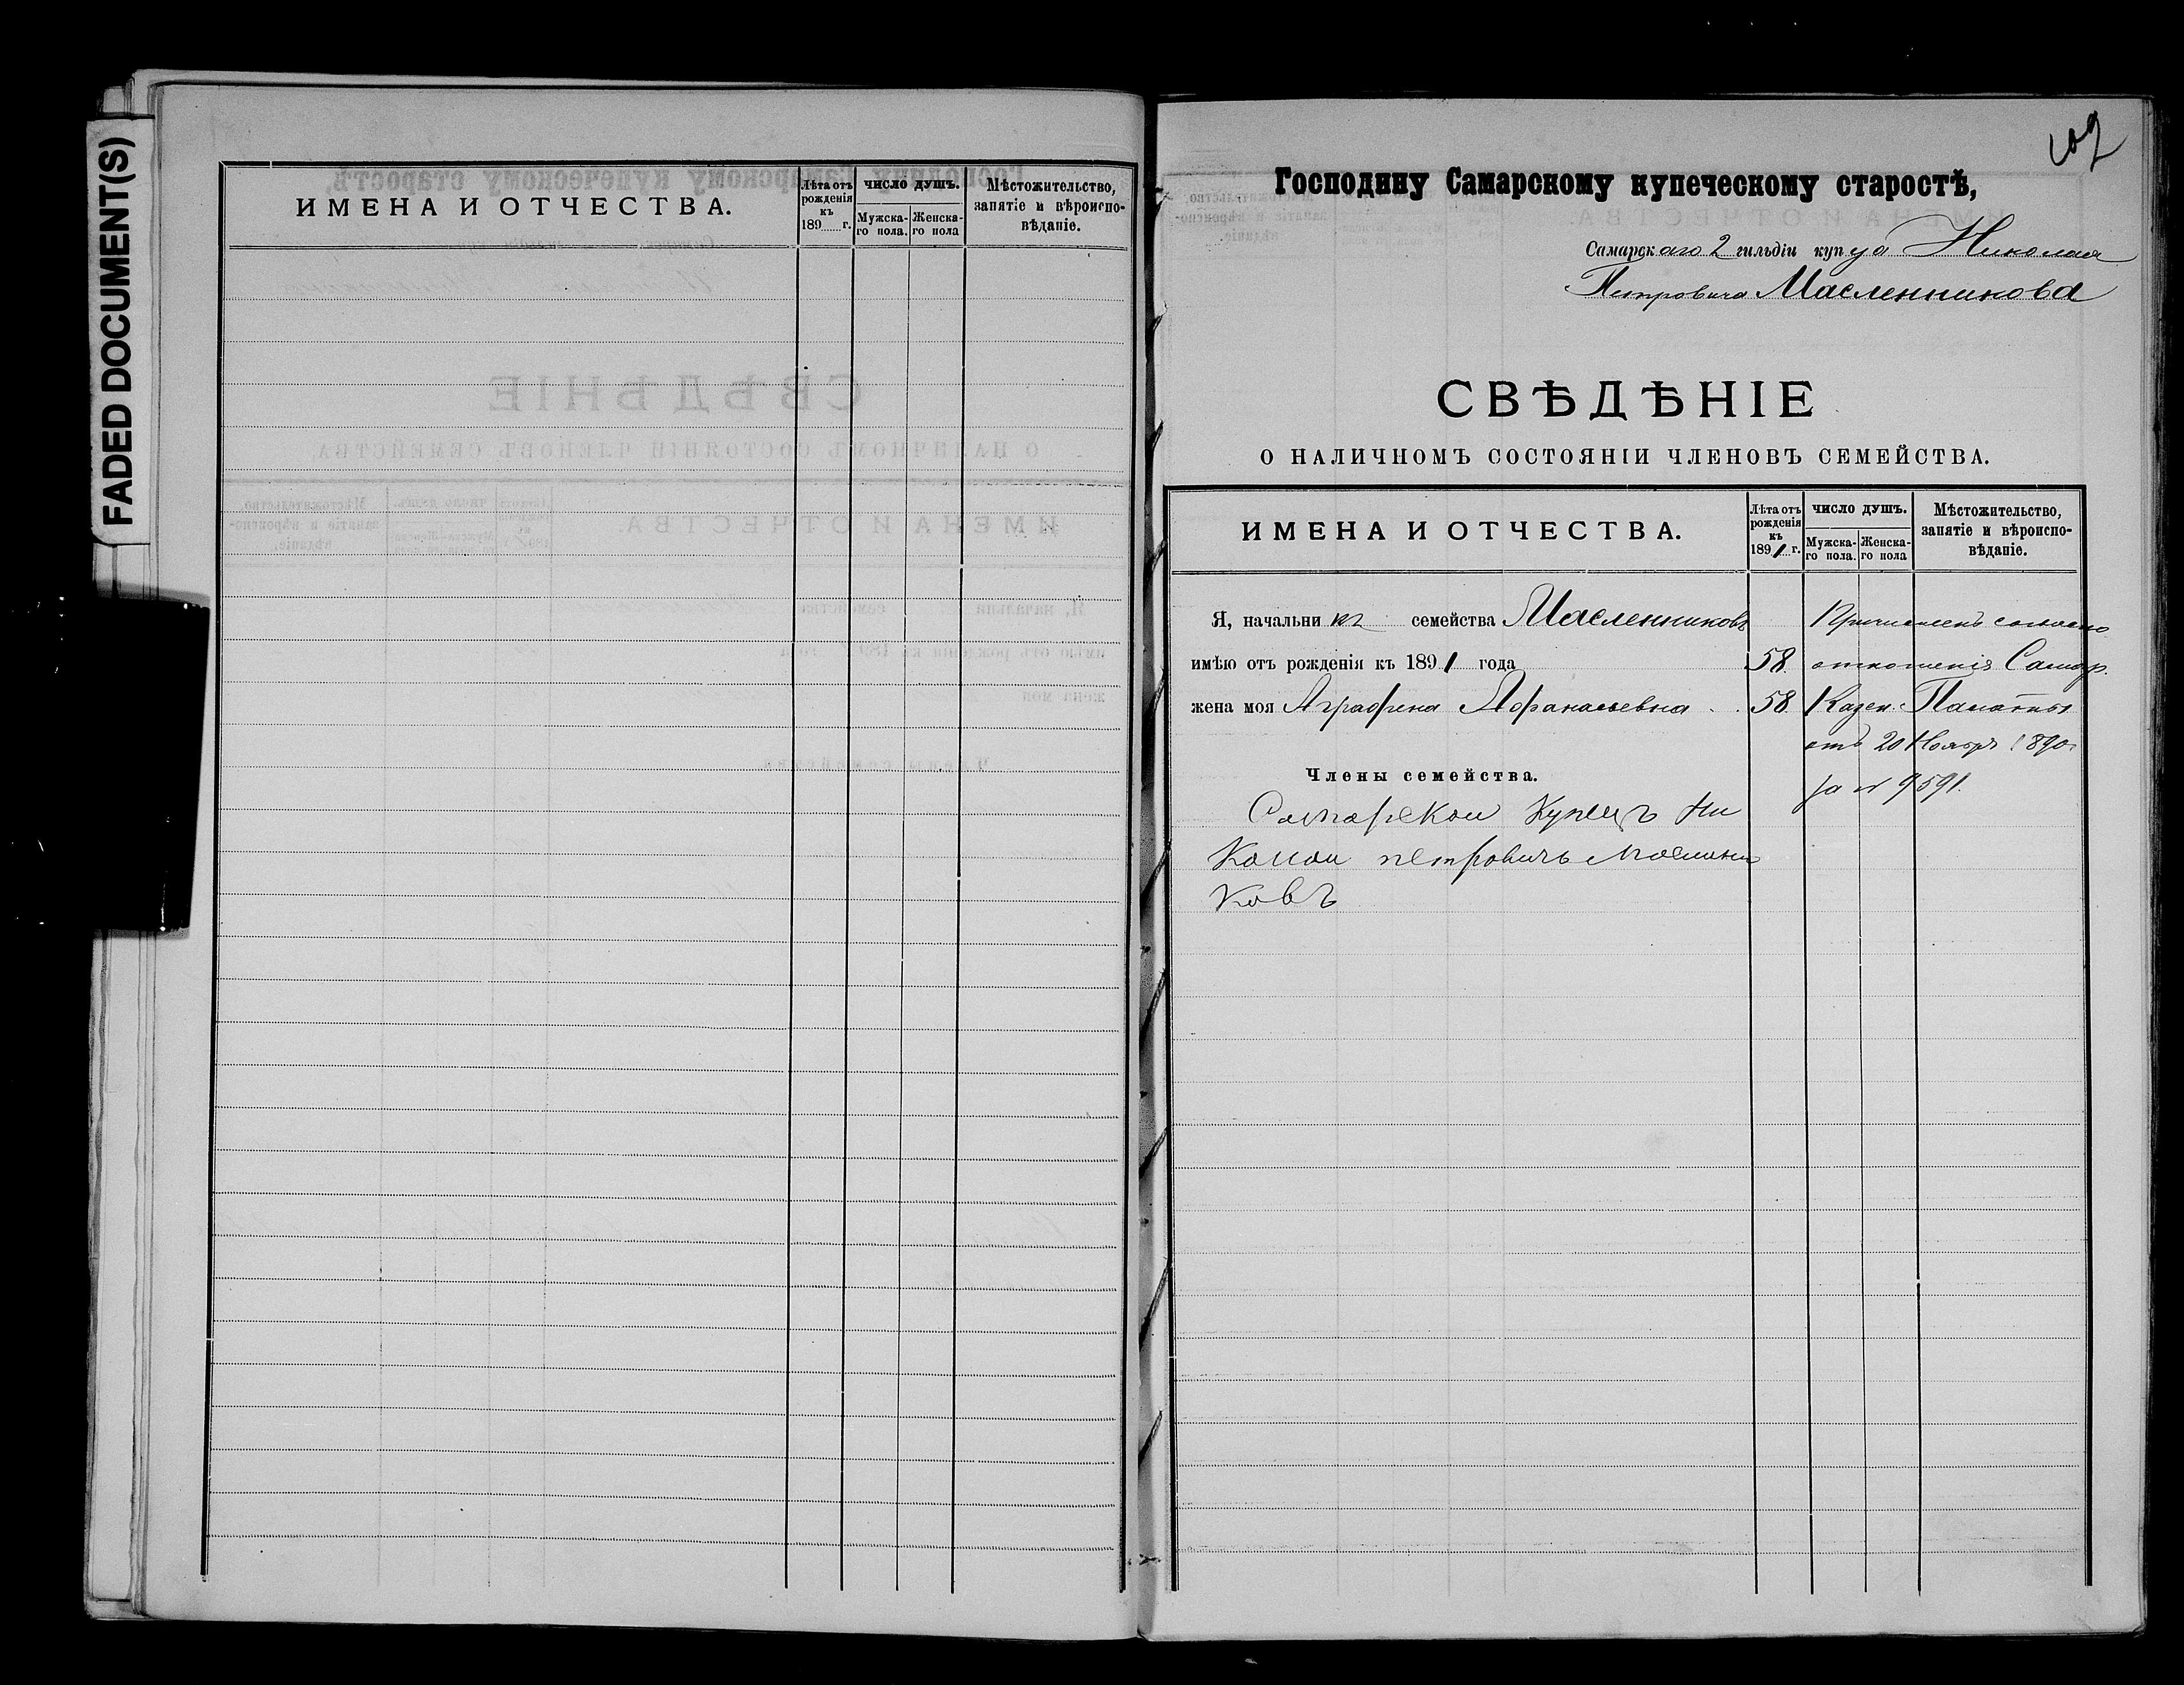 FADED DOCUMENT(S)
ИМЕНА И ОТЧЕСТВА.
Лѣта отъ рожденія къ 189 г.
ЧИСЛО ДУШЪ.
Мужска-го пола.
Женска-го пола
Мѣстожительство,
занятіе и вѣроиспо-
вѣданіе.
102
Господину Самарскому купеческому старостѣ,
Самарскаго 2 гильдіи купца Николая
Петровича Масленникова
СВѢДѢНІЕ
О НАЛИЧНОМЪ СОСТОЯНІИ ЧЛЕНОВЪ СЕМЕЙСТВА.
ИМЕНА И ОТЧЕСТВА.
Лѣта отъ рожденія къ 1891 г.
ЧИСЛО ДУШЪ.
Мужска-го пола.
Женска-го пола
Мѣстожительство,
занятіе и вѣроиспо-
вѣданіе.
Я, начальникъ семейства Масленниковъ Причисленъ согласно
имѣю отъ рожденія къ 1891 года 58. отношенія Самар.
жена моя Аграфена Афанасьевна 58. Казен. Палаты
отъ 20 Ноября 1890 г
Члены семейства.
за № 9591.
Самарскои Купецъ Ни
колаи петровичъ
ковъ